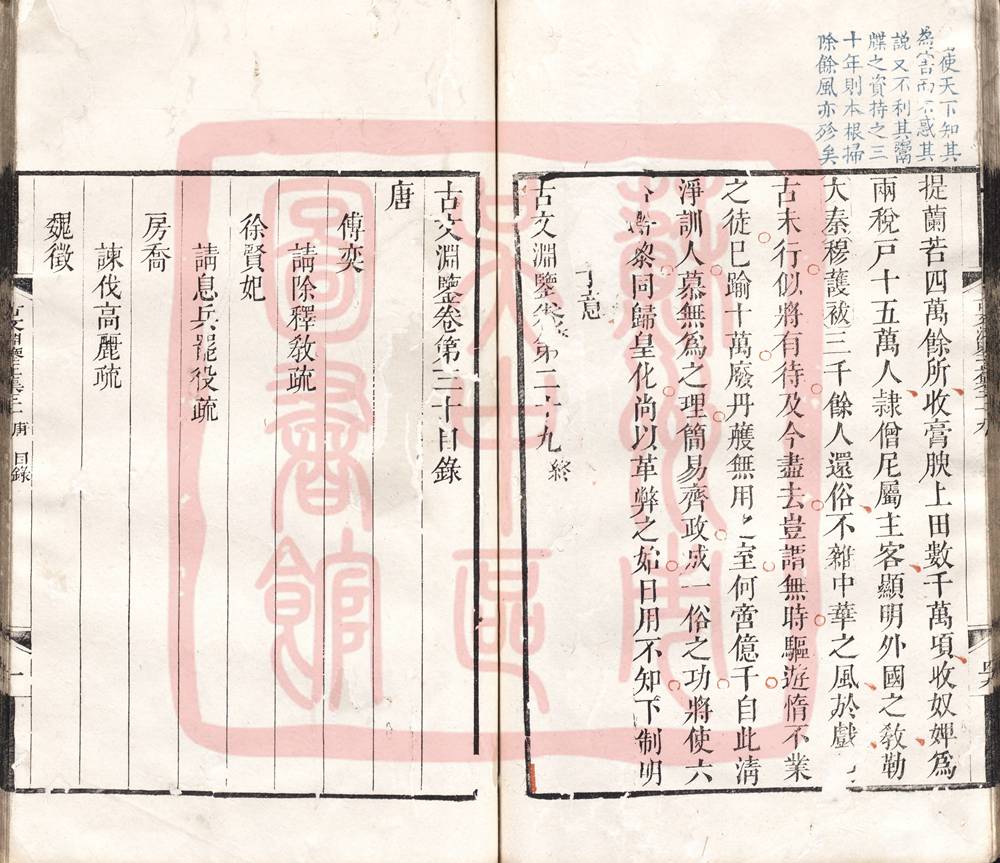 使天下知其
為害而不惑其
説又不利其鬻
牒之資持之三
十年則本根掃
除餘風亦殄矣
提蘭若四萬餘所收膏腴上田數千萬項收奴婢爲
兩稅戸十五萬人隸僧尼屬主客顯明外國之敎勒
大秦穆護祓三千餘人還俗不雜中華之風於戲
古未行似將有待及今盡去豈謂無時驅遊惰不業
之徒已踰十萬廢丹雘無用之室何啻億千自此淸
淨訓人慕無爲之理簡易齊政成一俗之功將使六
合黔黎同歸皇化尚以革弊之始日用不知下制明
予意
古文淵鑒卷第二十九 終
古文淵鑒卷第三十目錄
唐
傅奕
請除釋敎疏
徐賢妃
請息兵罷役疏
房喬
諫伐高麗疏
魏徵
唐 目錄
一
蘇州市
吴中區
圖書館